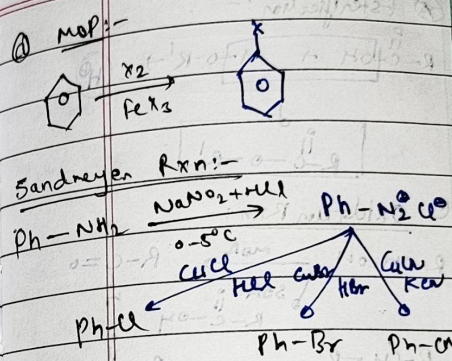 d MOP:-
X
X2
FeX3
Sandmeyer Rxn:-
Ph-NH2 NaNO2+HCl Ph-N2⊕Cl⊖
0-5°C
CuCl HCl CuBr HBr CuCN KCN
Ph-Cl Ph-Br Ph-CN